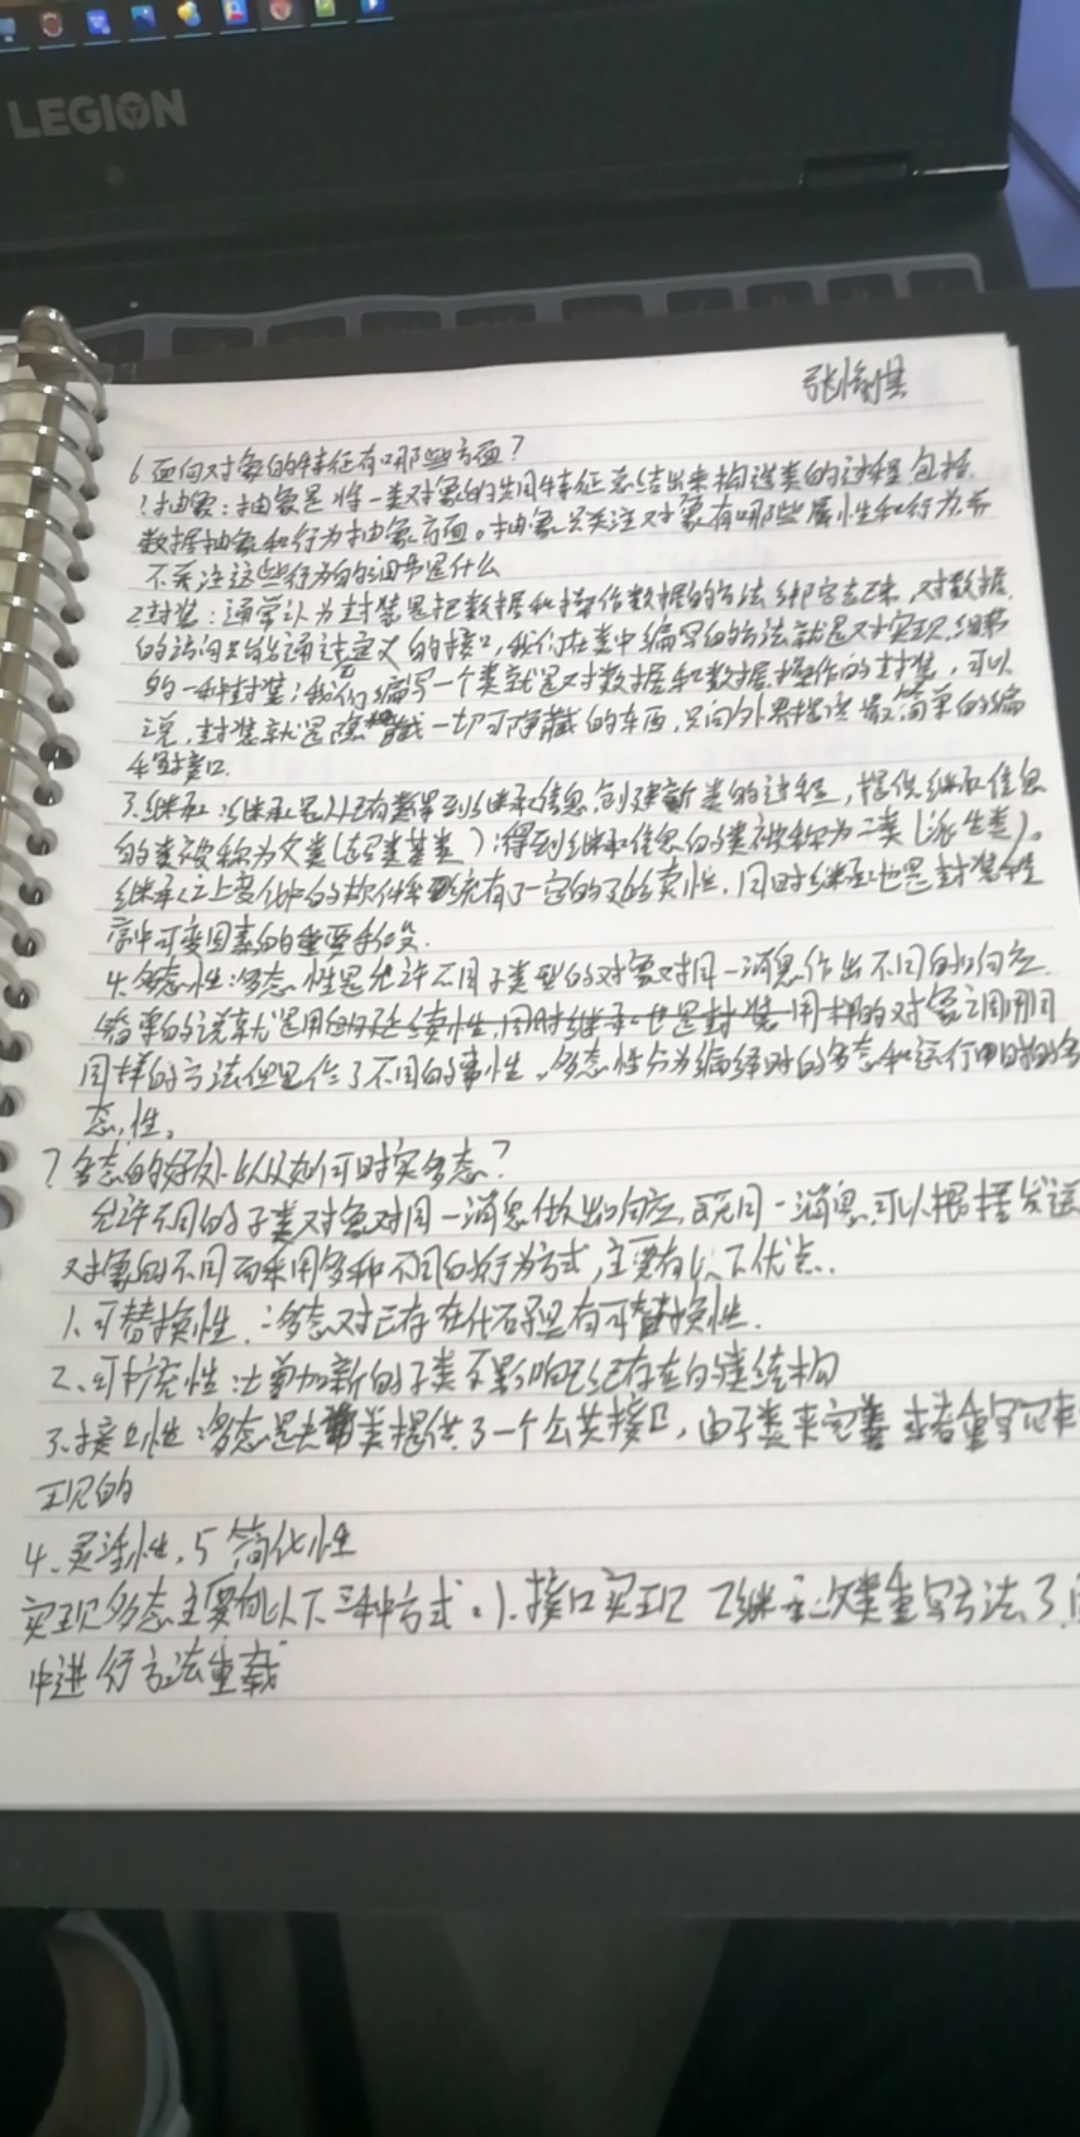 LEGION
张
6.面向对象的特征有哪些方面?
1.抽象:抽象是将一类对象的共同特征总结出来构造类的过程包括
数据抽象和行为抽象方面。抽象只关注对象有哪些属性和行为,并
不关注这些行为的细节是什么
2.封装:通常认为封装是把数据和操作数据的方法绑定起来,对数据
的访问只能通过定义的接口,我们在类中编写的方法就是对实现细节
的一种封装;我们编写一个类就是对数据和数据操作的封装,可以
说,封装就是隐藏一切可隐藏的东西,只向外界提供最简单的编
接口.
3.继承:继承是从已有类得到继承信息,创建新类的过程,提供继承信息
的类被称为父类(超类基类);得到继承信息的类被称为子类(派生类)。
继承让变化中的软件系统有了一定的延续性,同时继承也是封装程
序中可变因素的重要手段.
4.多态性:多态性是允许不同子类型的对象对同一消息作出不同的响应.
简单的说就是用的延续性,同时继承也是封装用样的对象调用同
同样的方法但是作了不同的事性。多态性分为编译时的多态和运行时的多
态性。
7.多态的好处以及如何时实多态?
允许不同的子类对象对同一消息做出响应,既同一消息可以根据发送
对象的不同而采用多种不同的行为方式,主要有以下优点.
1、可替换性:多态对已存在代码具有可替换性.
2、可扩充性:增加新的子类不影响已经存在的类结构
3.接口性:多态是类提供了一个公共接口,由子类来完善或者重写它来
实现的
4、灵活性.5简化性
实现多态主要有以下三种方式:1.接口实现 2继承父类重写方法3.
中进行方法重载